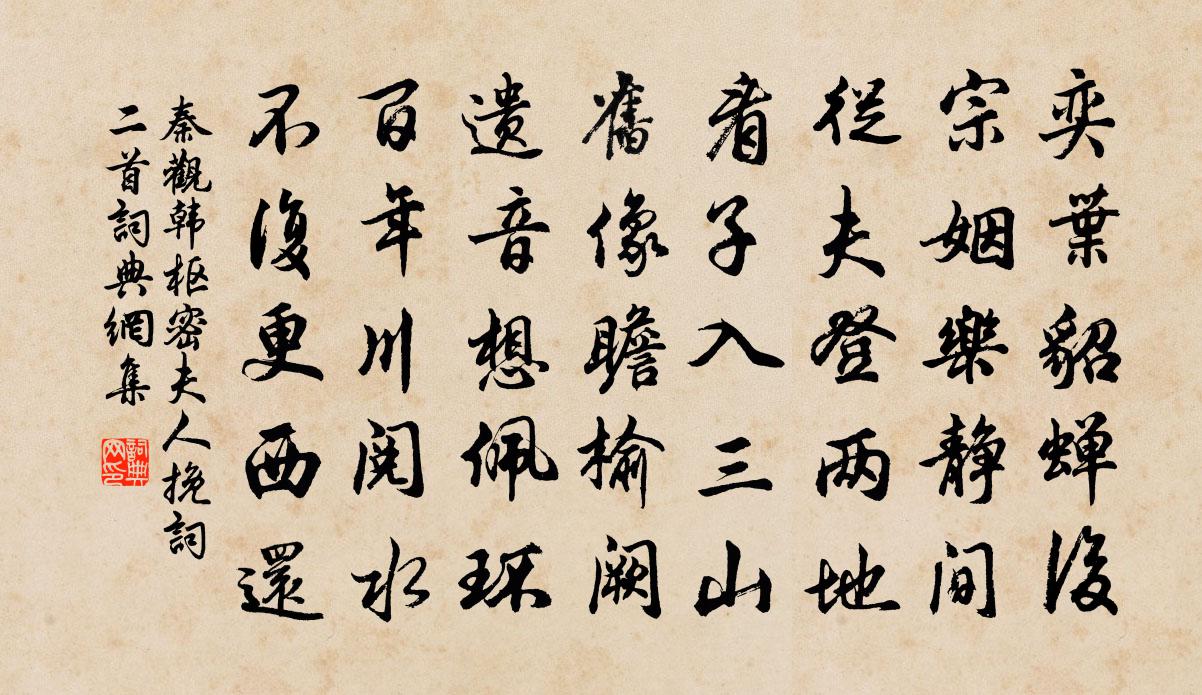 奕葉貂蝉後
宗姻樂静间
從夫登两地
看子入三山
舊像瞻榆阙
遗音想佩环
百年川阅水
不復更西還
秦觀韩枢密夫人挽詞
二首詞典網集
詞典网印